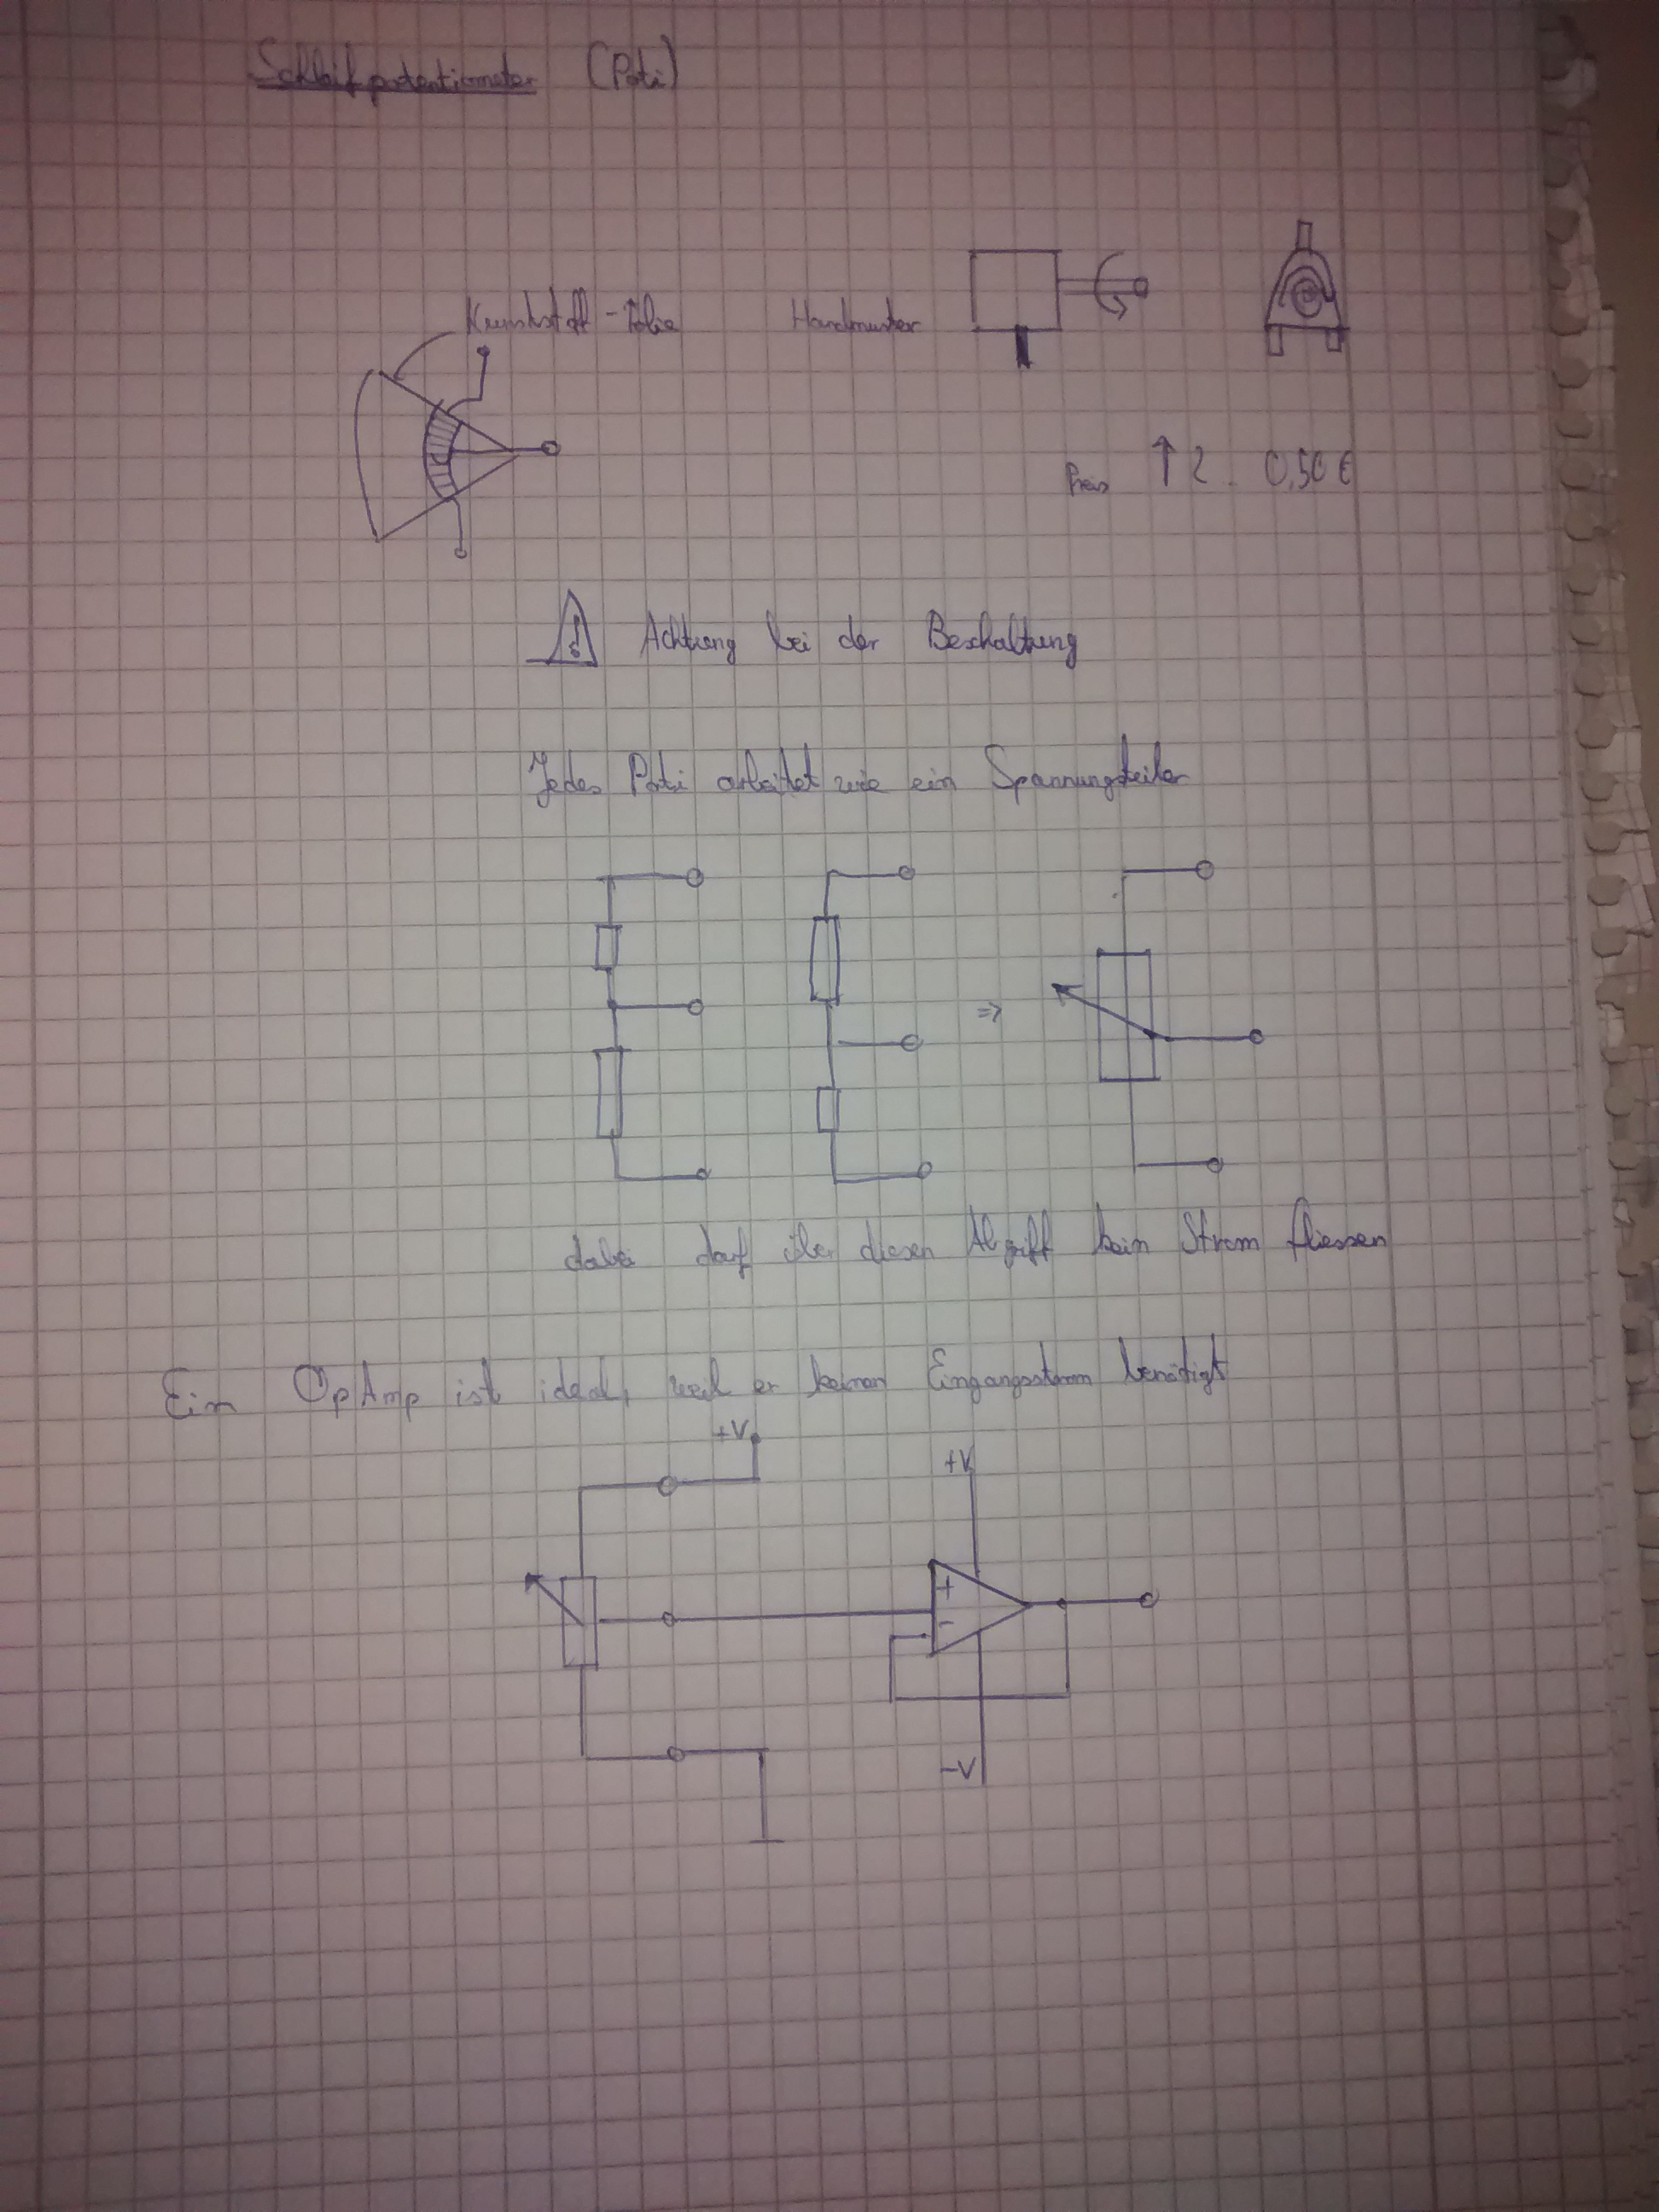 Schleifpotentiometer (Poti)
Kunststoff-Folie Handmuster
Preis ↑ 0,50 €
Achtung bei der Beschaltung
Jedes Poti arbeitet wie ein Spannungsteiler
⇒
dabei darf über diesen Abgriff kein Strom fliessen
Ein OpAmp ist ideal, weil er keinen Eingangsstrom benötigt
+V
+V
+
-
-V